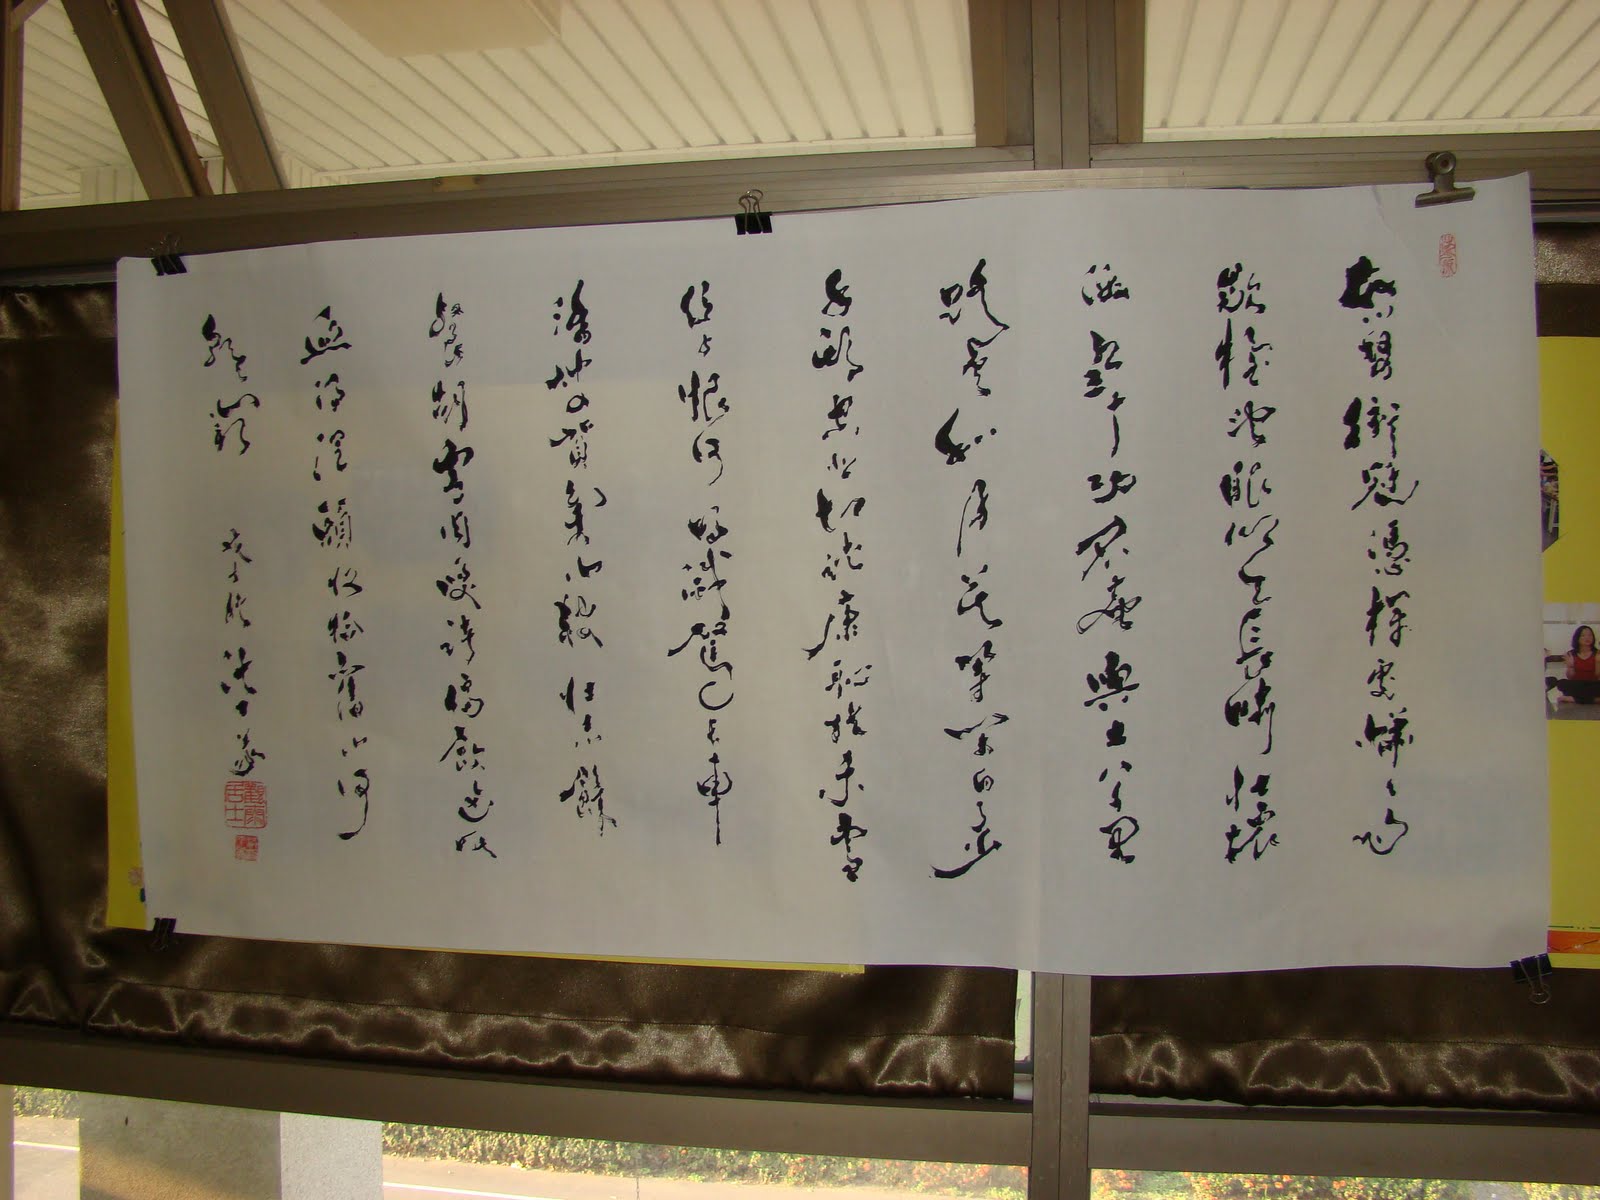 怒髮衝冠憑欄處瀟瀟雨
歇抬望眼仰天長嘯壯懷
激烈三十功名塵與土八千里
路雲和月莫等閒白了少
年頭空悲切靖康恥猶未雪
臣子恨何時滅駕長車
踏破賀蘭山缺壯志飢
餐胡虜肉笑談渴飲匈奴
血待從頭收拾舊山河
朝天闕 戊子
居士